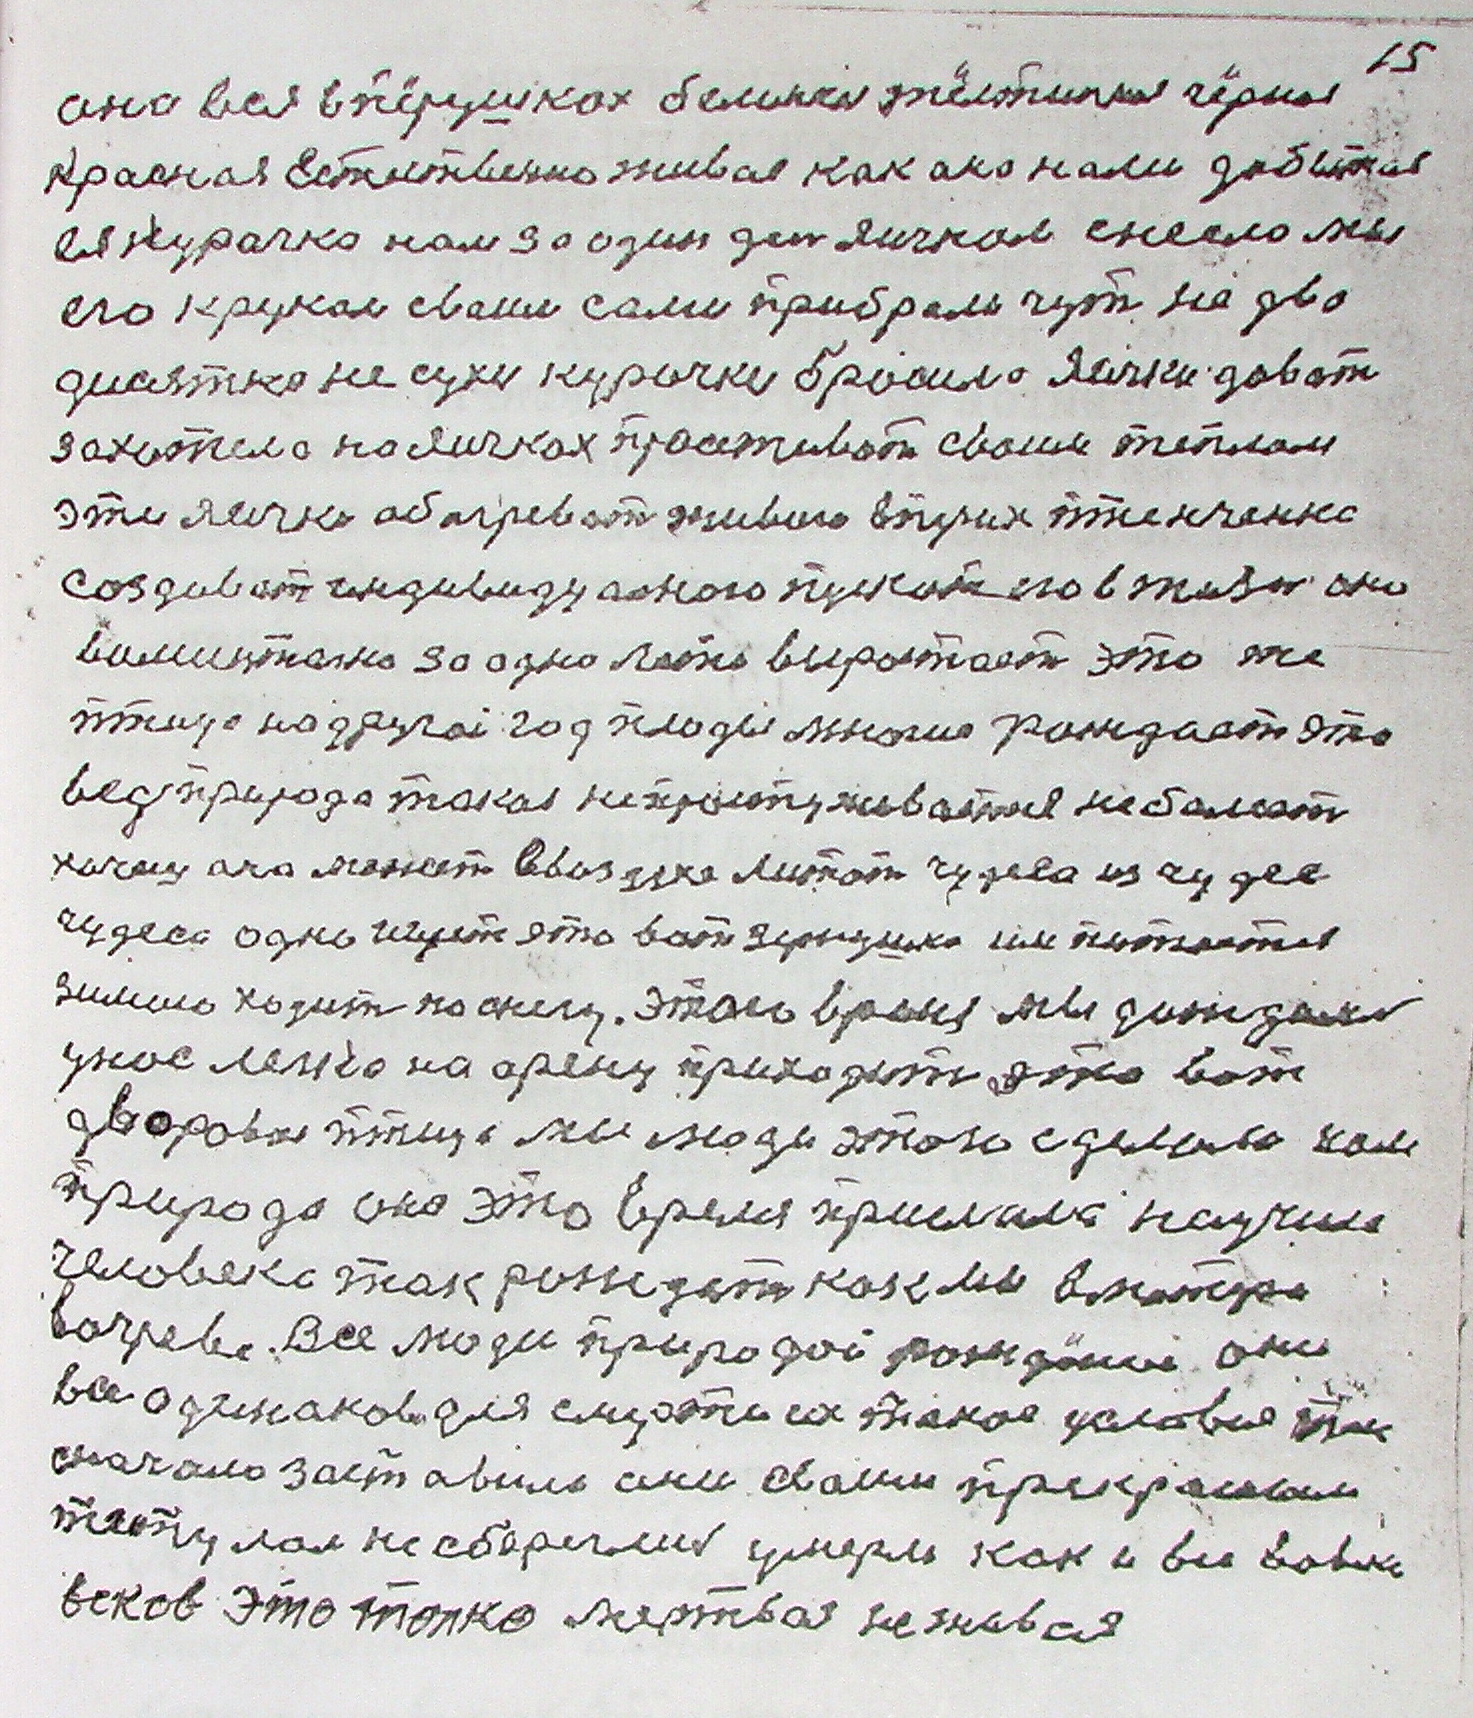 15
она вся впёрушках белинкая жёлтинкая чёрная
красная Естиственно живая как ана нами добытая
ея курачка нам за один ден яичком снесла мы
его круками сваими сами прибрали чут не два
дисятка не сухи курочки бросила яички дават
захотела на яичках просиживат сваим теплам
эти яички абагреват живого впурих птенченка
создават индивидуалного пускат его в жизн она
вилишташа за одно лето вырастает это же
птица надругой год плоды многие рождает эта
вед природа такая непростуживатся не балеет
хочиш ана может ввоздухе литат чудеса из чудес
чудеса одни ищет эта вот зернушка им питается
зимаю ходит по снегу. Этого время мы дождали
унас легко на арену приходит эта вот
дворовая птица мы люди этого сделали нам
природа она это время прислала научила
человека так рождат как мы вматери
вочреве. Все люди природой рождёные они
все одинаково для смерти их такое условие так
сначало заставило они сваим прекрасным
титулам не сберегли умерли как и все вовики
веков это толко мертвая не живая